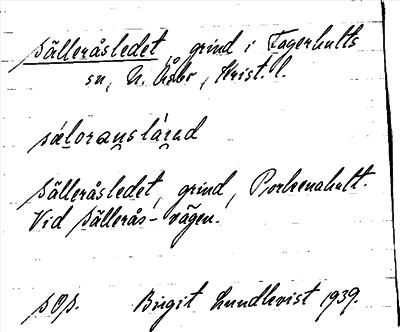 Sälleråsledet, grind i Fagerhults
sn, N. Åsbo, Krist. l.
sälorånslárəd
Sälleråsledet, grind, Porkenahult.
Vid Sällerås-vägen.
pop. Birgit Lundkvist 1939.